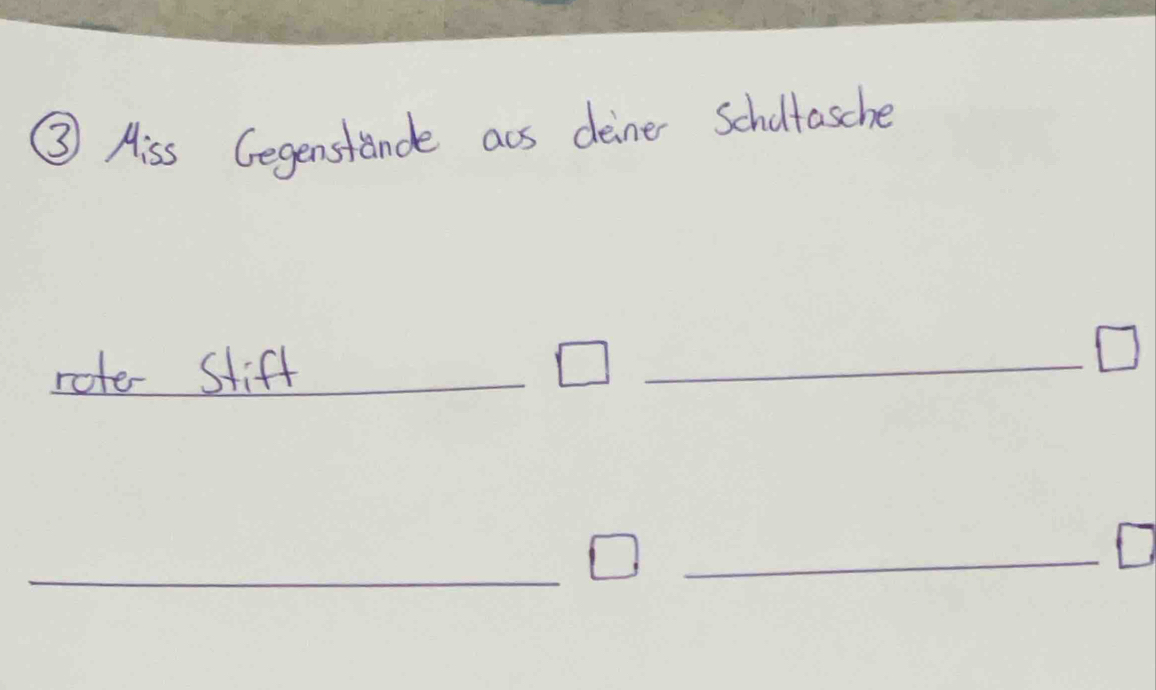 ③ Miss Gegenstände aus deiner Schultasche
roter Stift